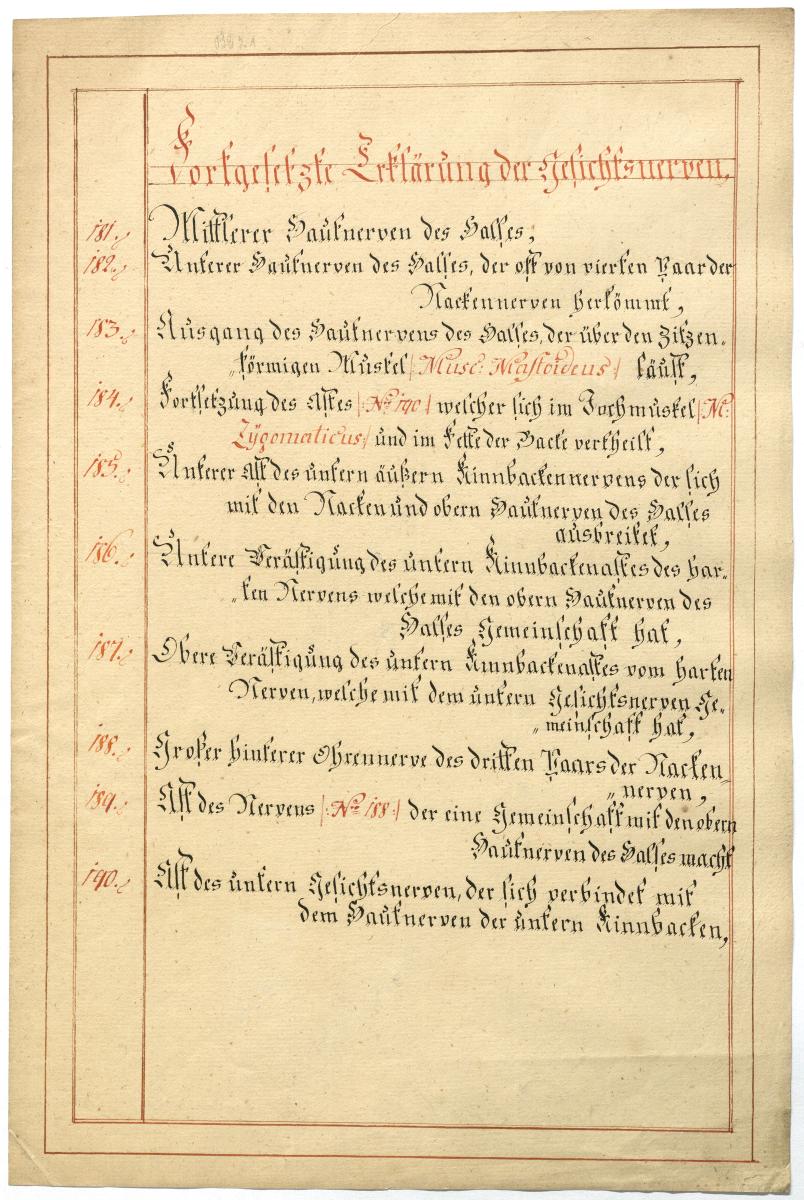 Fortgesetzte Erklärung der Gesichtsnerven,
181. Mittlerer Hautnerven des Halses,
182. Unterer Hautnerven des Halses, der oft von vierten Paar der
Nackennerven herkömmt,
183. Ausgang des Hautnervens des Halses, der über den Zitzen-
„förmigen Muskel |: Musc: Mastoideus :| läuft,
184. Fortsetzung des Astes |: No 190 :| welcher sich im Jochmuskel |: M:
Zÿgomaticus :| und im Fette der Backe vertheilt,
185. Unterer Ast des untern äußern Kinnbackennervens der sich
mit den Nacken und obern Hautnerven des Halses
ausbreitet,
186. Untere Verästigung des untern Kinnbackenastes des har-
„ten Nervens welche mit den obern Hautnerven des
Halses Gemeinschaft hat,
187. Obere Verästigung des untern Kinnbackenastes vom harten
Nerven, welche mit dem untern Gesichtsnerven Ge-
„meinschaft hat,
188. Großer hinterer Ohrennerve des dritten Paars der Nacken-
„nerven,
189. Ast des Nervens |: No 188 :| der eine Gemeinschaft mit den obern
Hautnerven des Halses macht
190. Ast des untern Gesichtsnerven, der sich verbindet mit
dem Hautnerven der untern Kinnbacken,